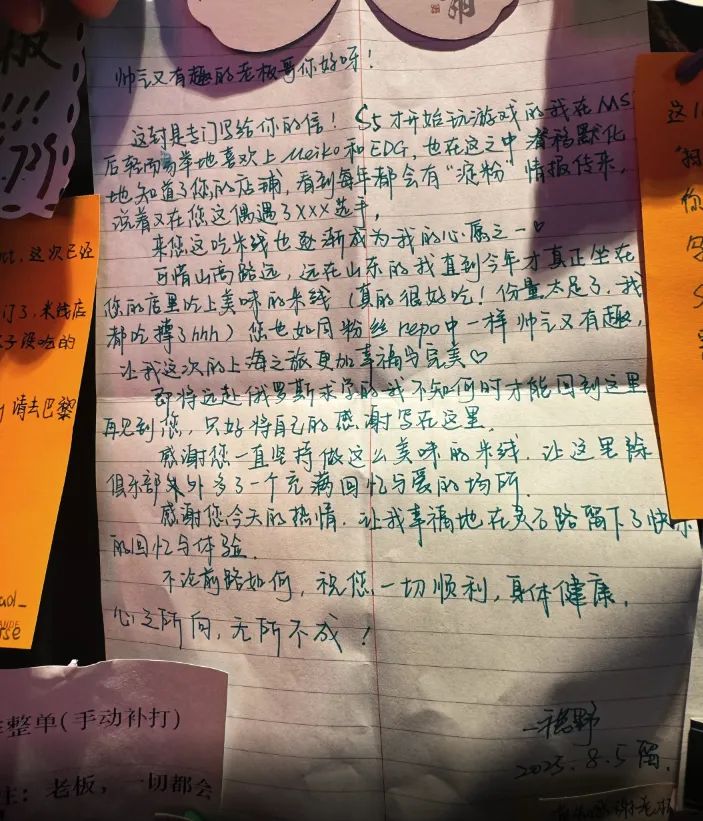 帅气又有趣的老板哥你好呀！
这封是专门写给你的信！S5才开始玩游戏的我在MSI
后轻而易举地喜欢上Meiko和EDG，也在这之中潜移默化
地知道了您的店铺，看到每年都会有“淀粉”情报传来，
说着又在您这偶遇了XXX选手，
来您这吃米线也逐渐成为我的心愿之一♡
可惜山高路远，远在山东的我直到今年才真正坐在
您的店里吃上美味的米线（真的很好吃！份量太足了，我
都吃撑了hhh）您也如同粉丝repo中一样帅气又有趣，
让我这次的上海之旅更加幸福与完美♡
即将远赴俄罗斯求学的我不知何时才能回到这里
再见到您，只好将自己的感谢写在这里。
感谢您一直坚持做这么美味的米线，让这里除
俱乐部外外多了一个充满回忆与爱的场所。
感谢您今天的热情，让我幸福地在灵石路留下了快乐
的回忆与体验。
不论前路如何，祝您一切顺利，身体健康，
心之所向，无所不成！
野
2025.8.5留
板
!!!
这次已经
了，米线店
子没吃的
请去巴黎
整单(手动补打)
注：老板，一切都会
这
你